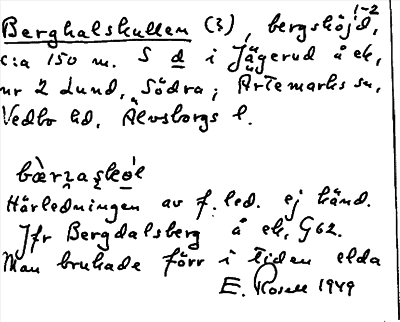 Berghalskullen (3), bergshöjd, 1-2
c:a 150 m. S d i Jägerud å ek,
nr 2 Lund, Södra; Ärtemarks sn,
Vedbo hd, Älvsborgs l.
bæ̀rzaskól
Härledningen av f. led. ej känd.
Jfr Bergdalsberg å ek, G62.
Man brukade förr i tiden elda
E. Rosell 1949